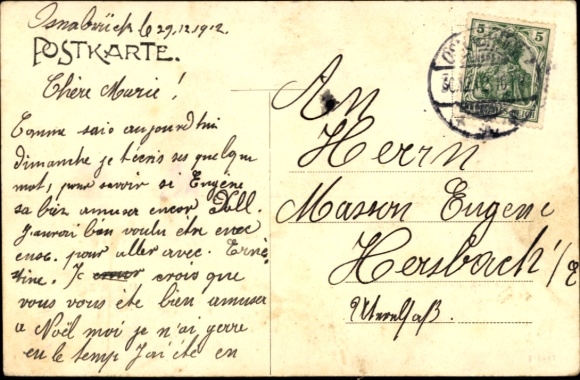 Osnabrück le 29.12.1912.
POSTKARTE.
Chère Marie!
Comme sais aujourd'hui
dimanche je t'ecris ses quelque
mot, pour savoir si Eugène
sa bien amuser encor
J'aurai bien voulu etre avec
pour aller avec. Erne-
stine. Je crois que
vous vous ete bien amuser
a Noël moi je n'ai gerre
eu le temp J'ai été en
5 5
An
Herrn
Masson Eugene
Hersbach i/E
Unterelsaß.